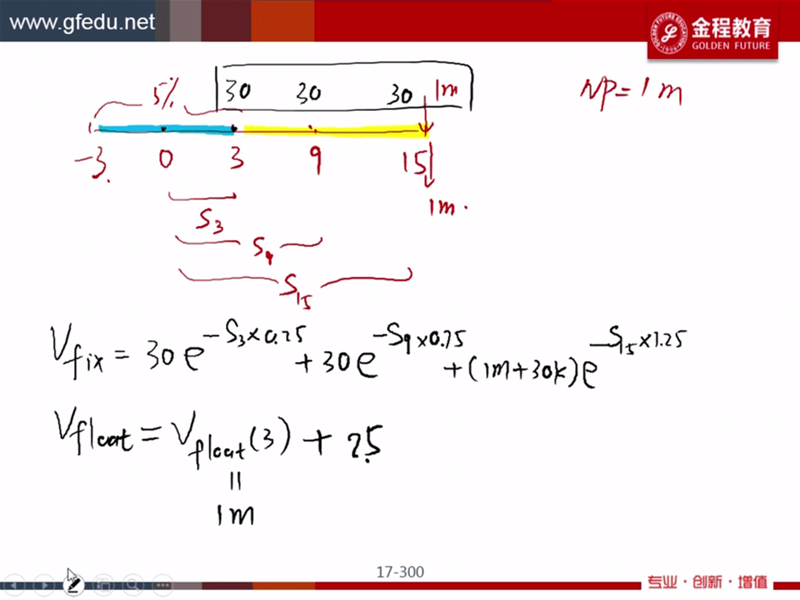 www.gfedu.net
金程教育
GOLDEN FUTURE
5% 30 30 30 1m NP=1m
-3 0 3 9 15
1m.
S3
S9
S15
Vfix = 30e^-S3×0.25 + 30e^-S9×0.75 + (1m+30k)e^-S15×1.25
Vfloat = Vfloat(3) + 25
=
1m
17-300
专业·创新·增值